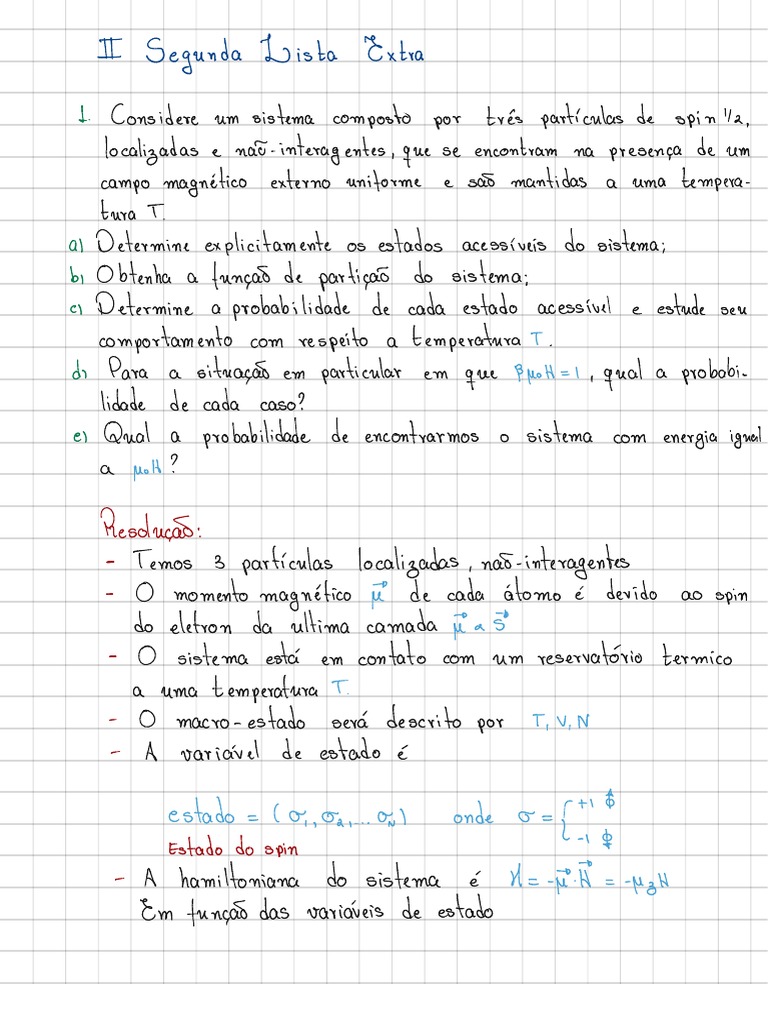 II Segunda Lista Extra
1. Considere um sistema composto por três partículas de spin 1/2,
localizadas e não-interagentes, que se encontram na presença de um
campo magnético externo uniforme e são mantidas a uma tempera-
tura T.
a) Determine explicitamente os estados acessíveis do sistema;
b) Obtenha a função de partição do sistema;
c) Determine a probabilidade de cada estado acessível e estude seu
comportamento com respeito a temperatura T.
d) Para a situação em particular em que βμ₀H = 1, qual a probabi-
lidade de cada caso?
e) Qual a probabilidade de encontrarmos o sistema com energia igual
a μ₀H?
Resolução:
- Temos 3 partículas localizadas, não-interagentes
- O momento magnético μ⃗ de cada átomo é devido ao spin
do eletron da ultima camada μ⃗ α S⃗
- O sistema está em contato com um reservatório termico
a uma temperatura T.
- O macro-estado será descrito por T, V, N
- A variável de estado é
estado = (σ₁, σ₂, ... σₙ) onde σ = { +1 ↑
-1 ↓
Estado do spin
- A hamiltoniana do sistema é H = -μ⃗·H⃗ = -μ₃H
Em função das variáveis de estado